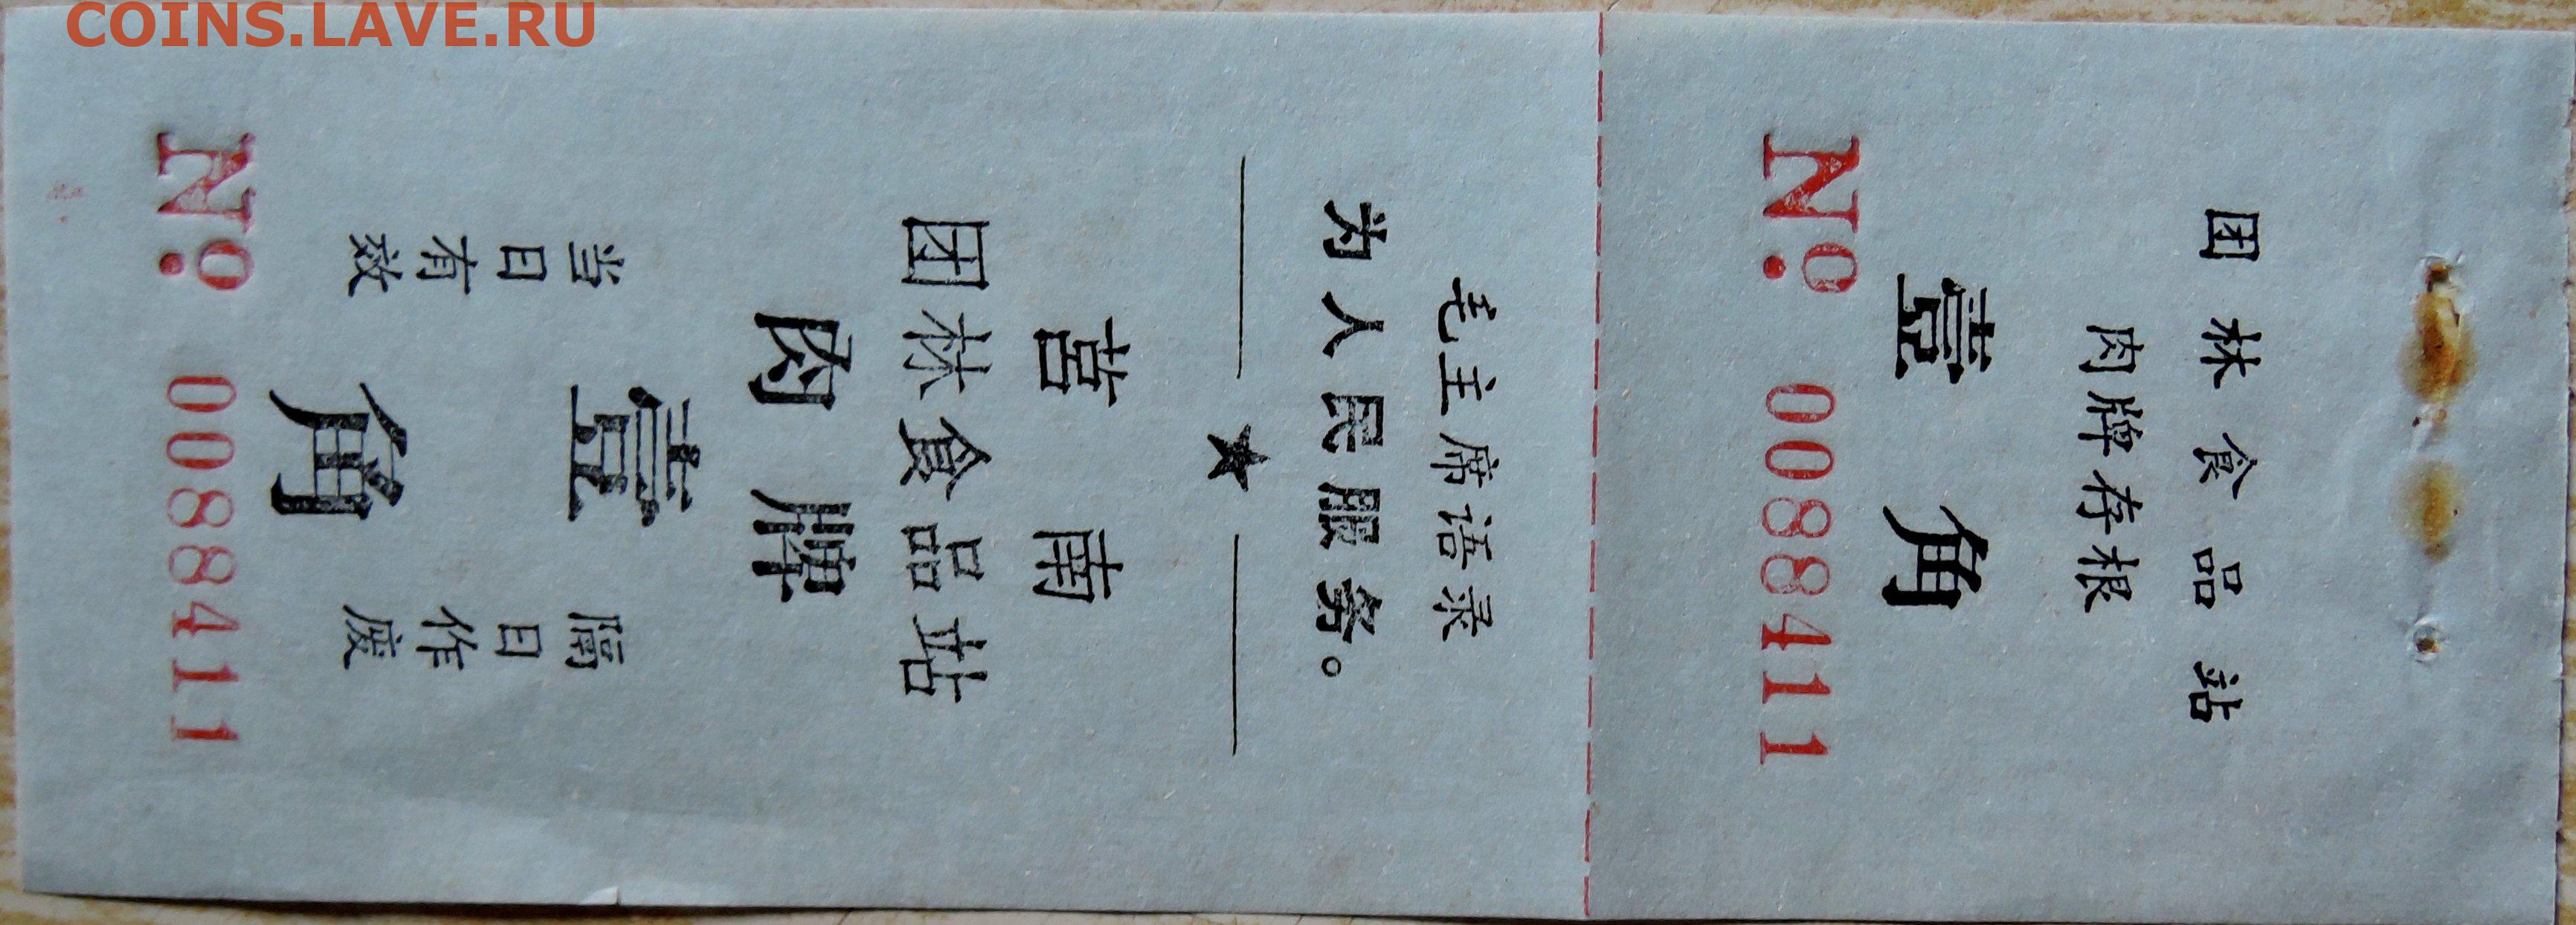 COINS.LAVE.RU
团林食品站
肉牌存根
壹角
Nº 0088411
毛主席语录
为人民服务。
★
莒南
团林食品站
肉牌
当日有效
壹角
隔日作废
Nº 0088411